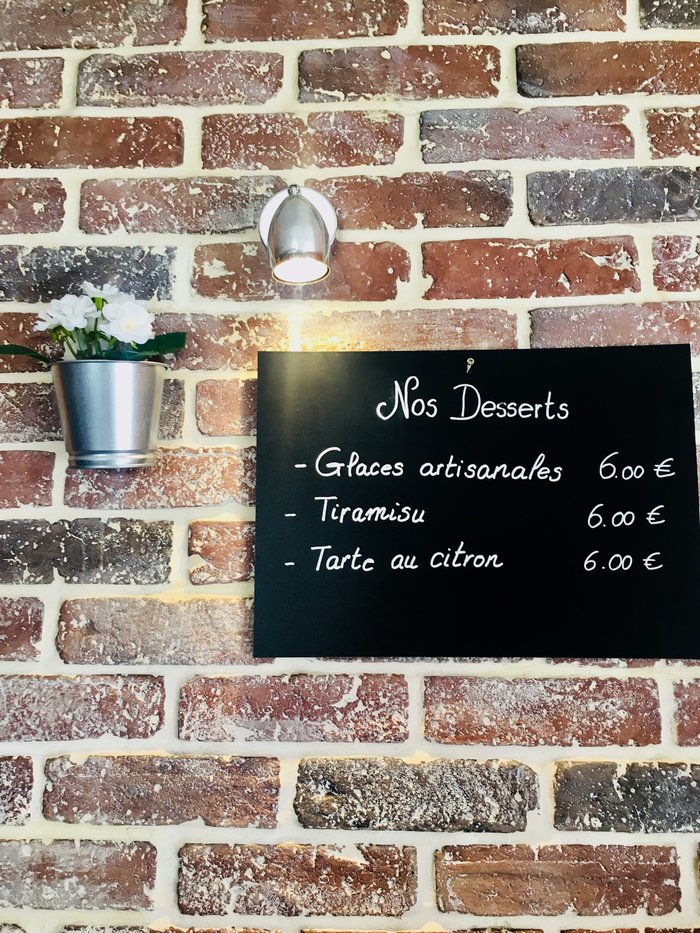 Nos Desserts
- Glaces artisanales 6.00 €
- Tiramisu 6.00 €
- Tarte au citron 6.00 €